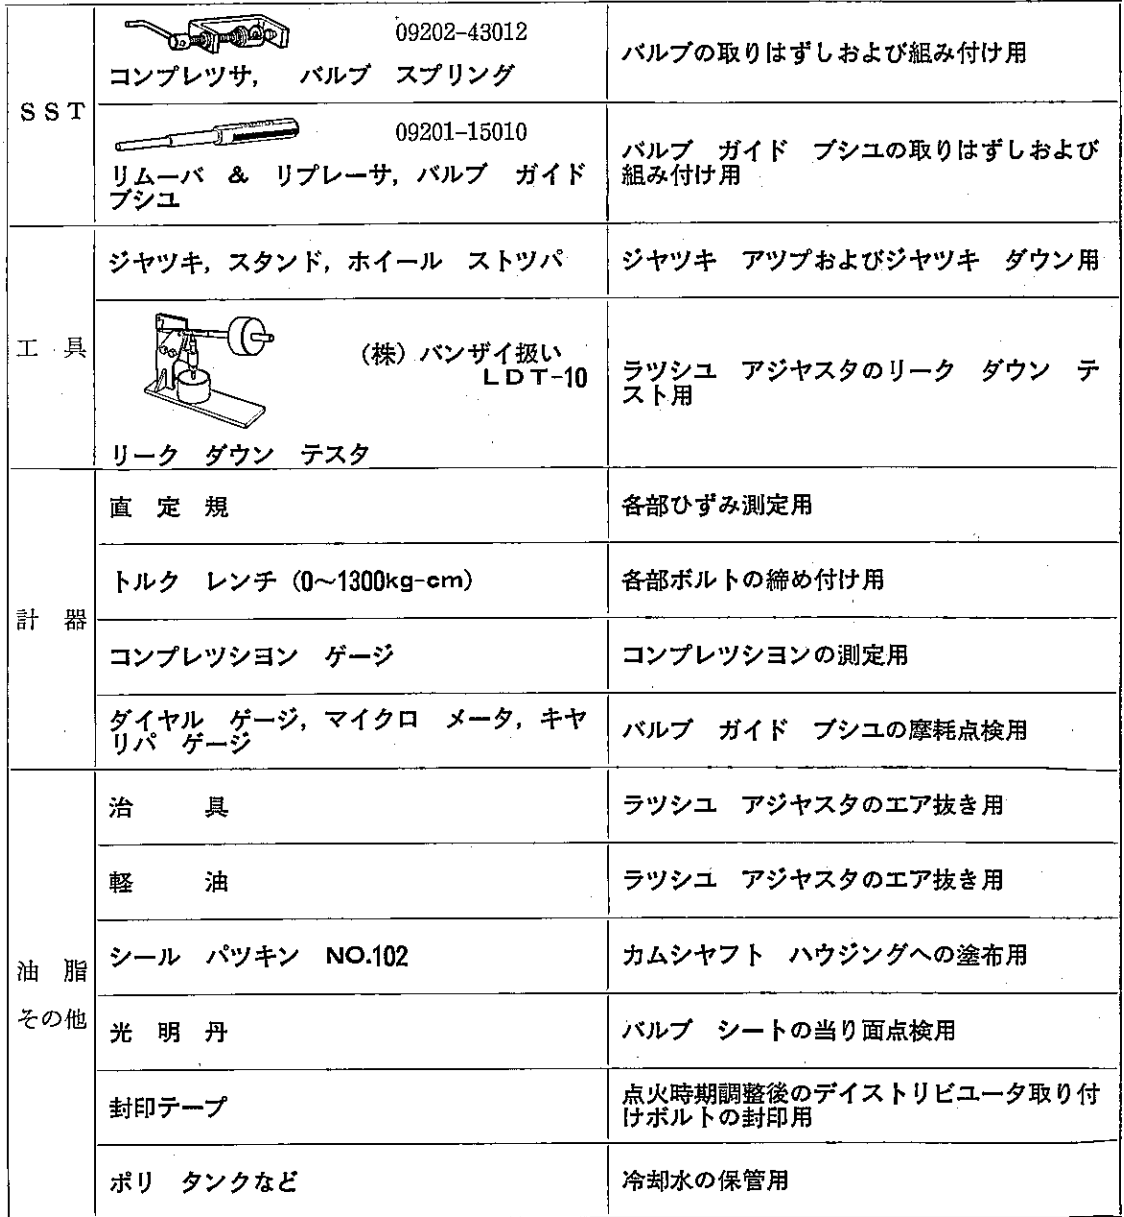 SST
09202-43012
コンプレツサ, バルブ スプリング
バルブの取りはずしおよび組み付け用
09201-15010
リムーバ & リプレーサ, バルブ ガイド
ブシユ
バルブ ガイド ブシユの取りはずしおよび
組み付け用
工 具
ジヤツキ, スタンド, ホイール ストツパ
ジヤツキ アツプおよびジヤツキ ダウン用
(株) バンザイ扱い
LDT-10
リーク ダウン テスタ
ラツシユ アジヤスタのリーク ダウン テ
スト用
計 器
直 定 規
各部ひずみ測定用
トルク レンチ (0〜1300kg-cm)
各部ボルトの締め付け用
コンプレツシヨン ゲージ
コンプレツシヨンの測定用
ダイヤル ゲージ, マイクロ メータ, キヤ
リパ ゲージ
バルブ ガイド ブシユの摩耗点検用
油 脂
その他
治 具
ラツシユ アジヤスタのエア抜き用
軽 油
ラツシユ アジヤスタのエア抜き用
シール パツキン NO.102
カムシヤフト ハウジングへの塗布用
光 明 丹
バルブ シートの当り面点検用
封印テープ
点火時期調整後のデイストリビユータ取り付
けボルトの封印用
ポリ タンクなど
冷却水の保管用